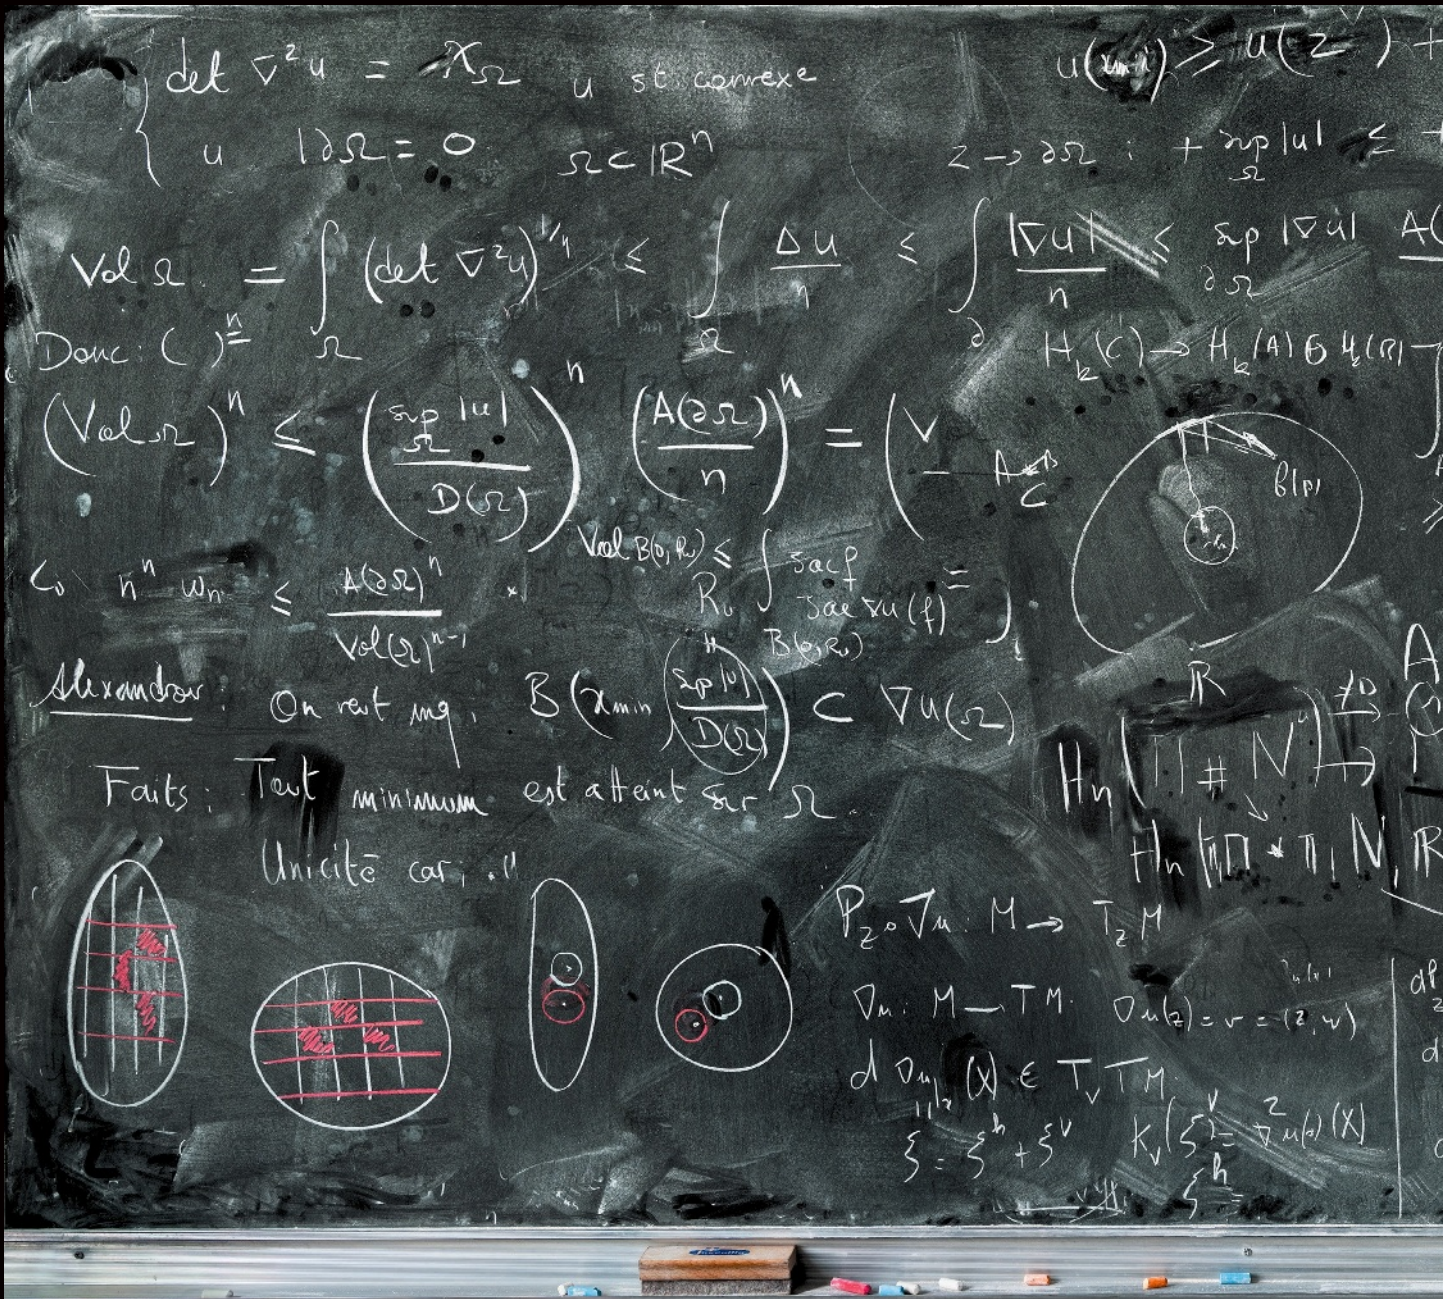 det ∇²u = χ_Ω u st convexe
u |∂Ω = 0 Ω ⊂ ℝⁿ
u(x_min) ≥ u(z) +
z → ∂Ω : + sup_Ω |u| ≤
Vol Ω = ∫_Ω (det ∇²u)^{1/n} ≤ ∫_Ω Δu/n ≤ ∫_∂ |∇u|/n ≤ sup_∂Ω |∇u| A(
Donc : ( )ⁿ =
H_k(C) → H_k(A) ⊕ H_k(B) →
(Vol Ω)ⁿ ≤ (sup_Ω |u| / D(Ω))ⁿ (A(∂Ω)/n)ⁿ = (V
A B
C
B(p)
C₀ nⁿ ωₙ ≤ A(∂Ω)ⁿ / Vol(Ω)ⁿ⁻¹
Vol B(0, R₀) ≤ ∫_B(0,R₀) Jac f =
Jac ∇u(f)
R₀
"
Alexandrov : On veut mq : B(x_min, sup |u| / D(Ω)) ⊂ ∇u(Ω)
Faits : Tout minimum est atteint sur Ω.
Unicité car :
ℝ
Hn (Π # N) →
Hn (Π₁Π * Π₁N, ℝ
P_z ∘ ∇u : M → T_z M
∇u : M → TM ∇u(z) = v = (z, w)
d ∇u|_z (X) ∈ T_v TM
ξ = ξ^h + ξ^v K_v(ξ^v) = ∇²u(z)(X)
ξ^h =